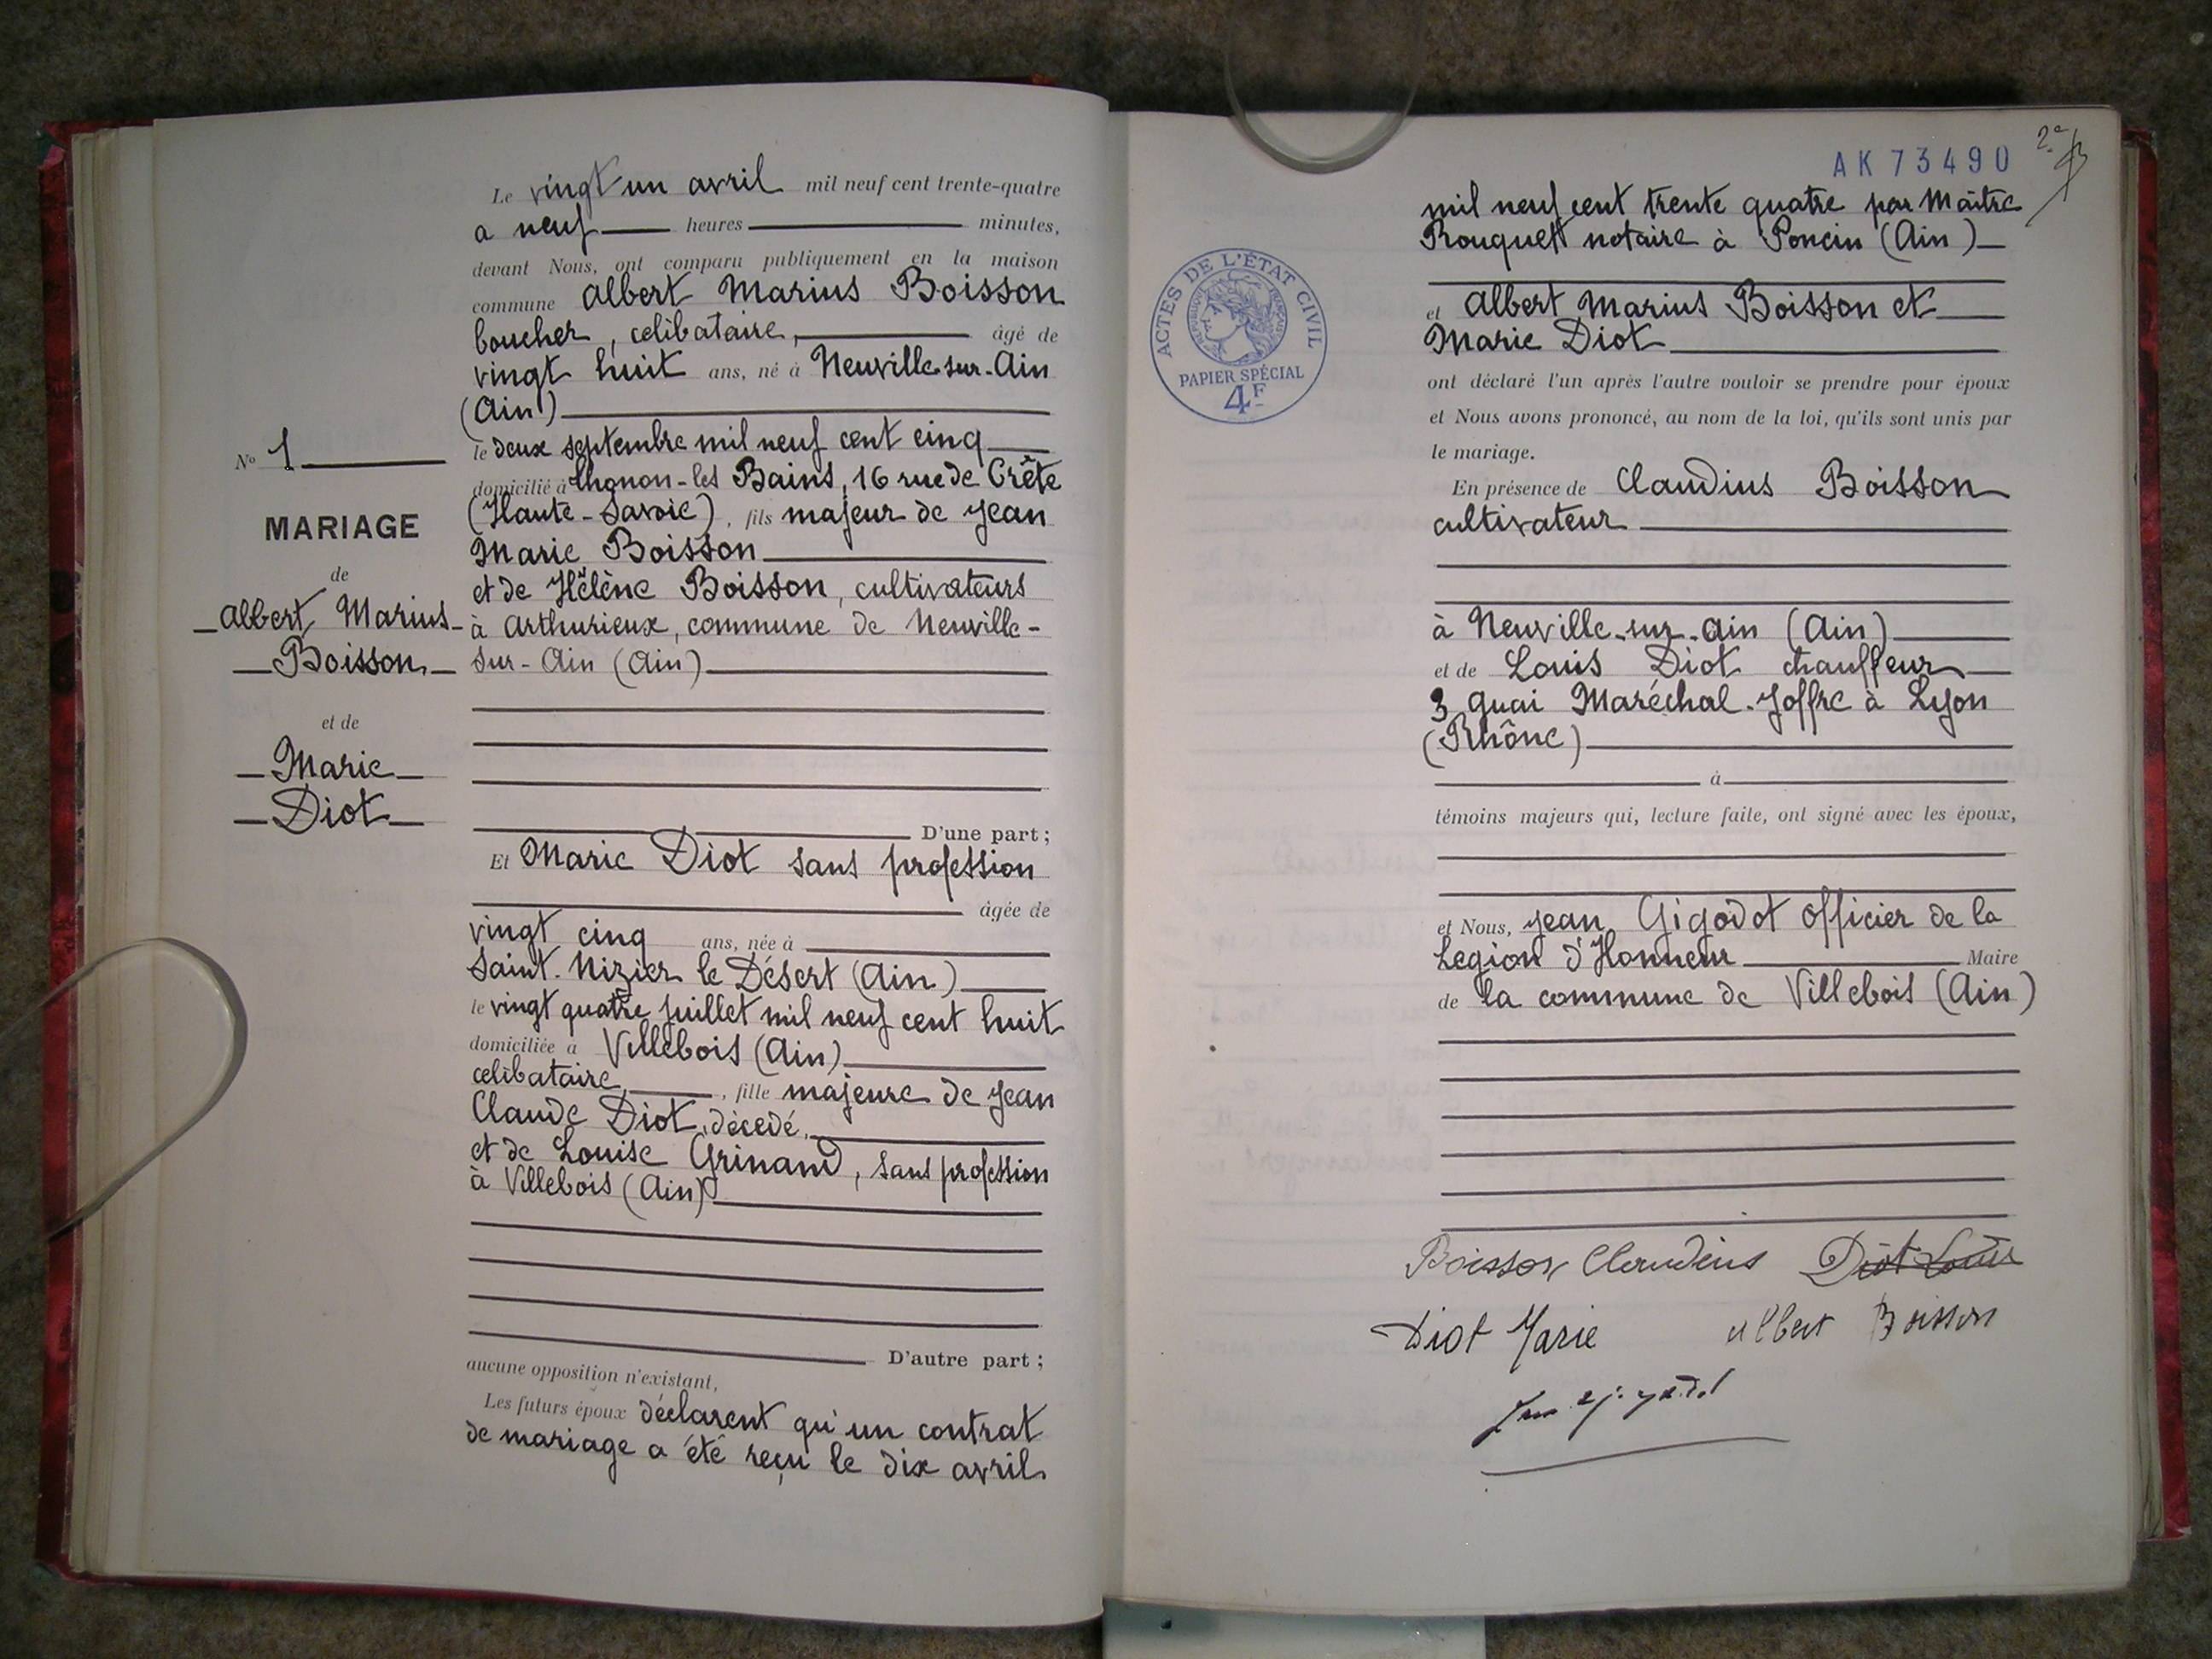 Le vingt un avril mil neuf cent trente-quatre
a neuf heures minutes,
devant Nous, ont comparu publiquement en la maison
commune Albert Marius Boisson
boucher, celibataire, âgé de
vingt huit ans, né à Neuville-sur-Ain
(Ain)
le deux septembre mil neuf cent cinq
domicilié à Thonon-les Bains, 16 rue de Crête
(Haute-Savoie), fils majeur de Jean
Marie Boisson
et de Hélène Boisson, cultivateurs
à Arthurieux, commune de Neuville-
sur-Ain (Ain)
D'une part;
Et Marie Diot sans profession
âgée de
vingt cinq ans, née à
Saint-Nizier le Désert (Ain)
le vingt quatre juillet mil neuf cent huit
domiciliée a Villebois (Ain)
celibataire, fille majeure de Jean
Claude Diot, décedé,
et de Louise Grinand, sans profession
à Villebois (Ain)
D'autre part;
aucune opposition n'existant,
Les futurs époux déclarent qu'un contrat
de mariage a été reçu le dix avril
No 1
MARIAGE
de
Albert Marius
Boisson
et de
Marie
Diot
AK73490
2e
mil neuf cent trente quatre par Maître
Rouquett notaire à Poncin (Ain)
et Albert Marius Boisson et
Marie Diot
ont déclaré l'un après l'autre vouloir se prendre pour époux
et Nous avons prononcé, au nom de la loi, qu'ils sont unis par
le mariage.
En présence de Claudius Boisson
cultivateur
à Neuville-sur-Ain (Ain)
et de Louis Diot chauffeur
3 Quai Maréchal-Joffre à Lyon
(Rhône)
à
témoins majeurs qui, lecture faite, ont signé avec les époux,
et Nous, Jean Gigodot Officier de la
Legion d'Honneur Maire
de la commune de Villebois (Ain)
ACTES DE L'ÉTAT CIVIL
RÉPUBLIQUE FRANÇAISE
PAPIER SPÉCIAL
4F
Boisson Claudius Diot Louis
Diot Marie Albert Boisson